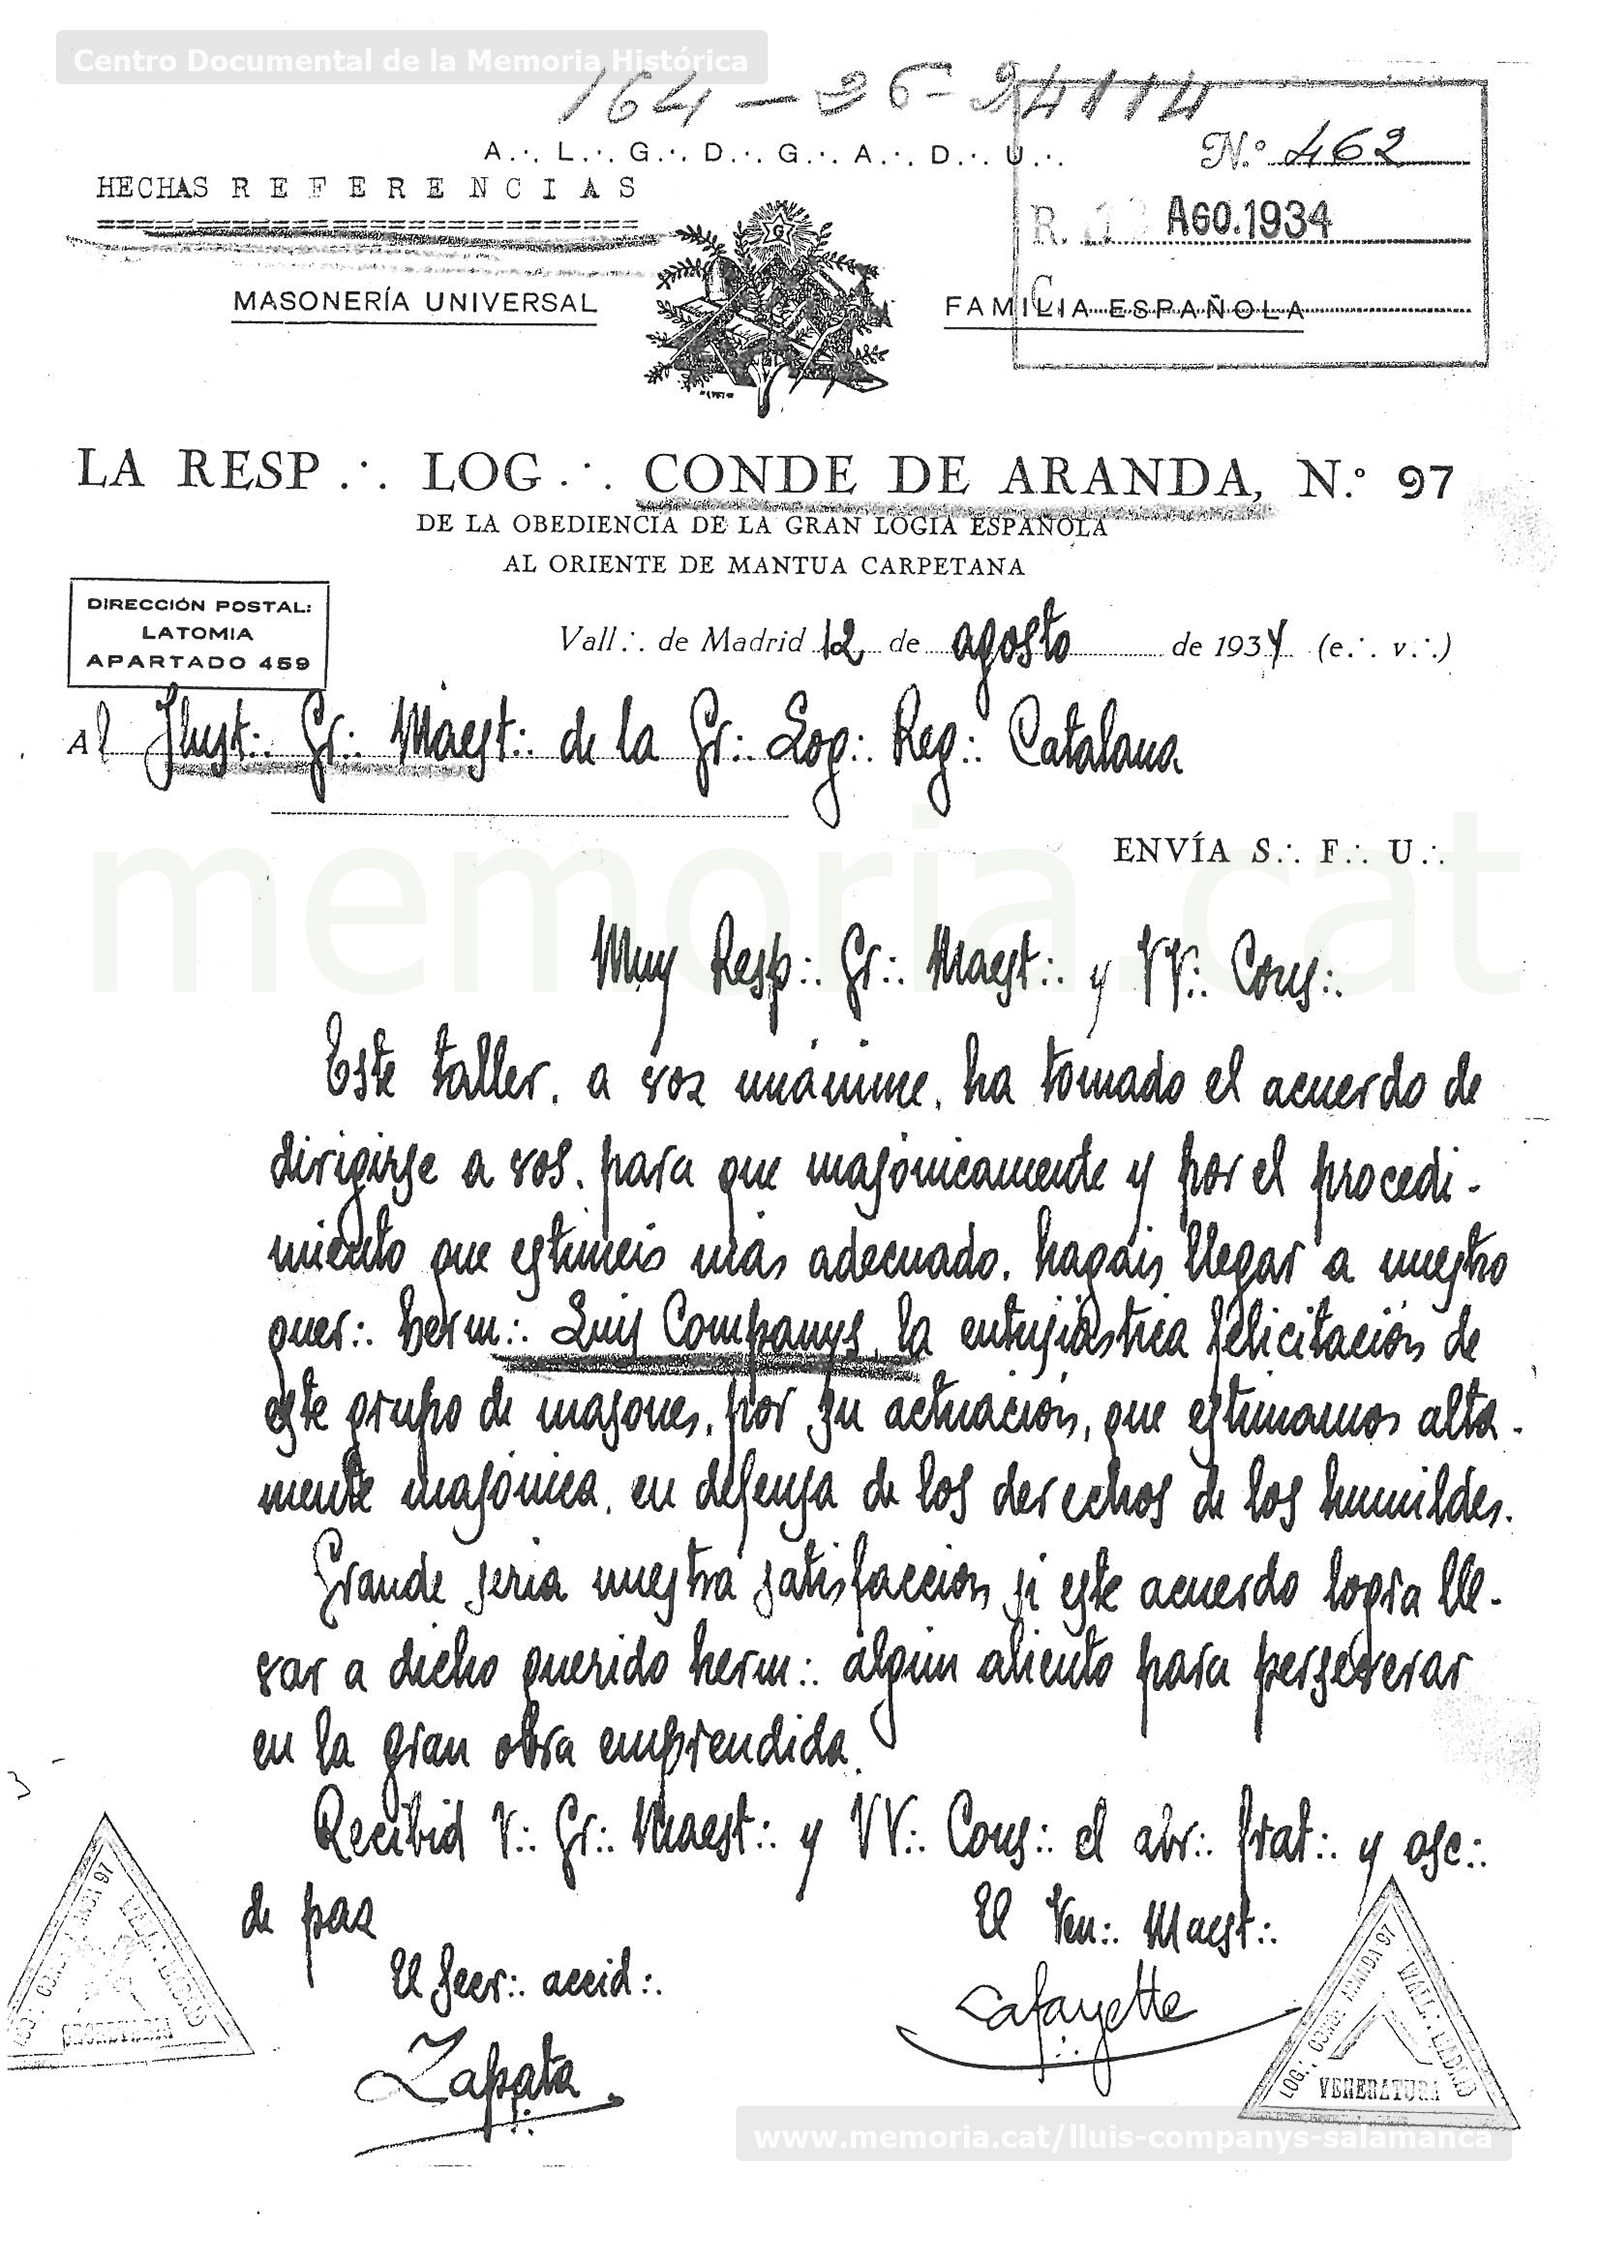 Centro Documental de la Memoria Histórica
164 - 26 - 24114
A.·. L.·. G.·. D.·. G.·. A.·. D.·. U.·.
N.º 462
HECHAS REFERENCIAS
R. AGO.1934
C
MASONERÍA UNIVERSAL
G
FAMILIA ESPAÑOLA
LA RESP.·. LOG.·. CONDE DE ARANDA, N.º 97
DE LA OBEDIENCIA DE LA GRAN LOGIA ESPAÑOLA
AL ORIENTE DE MANTUA CARPETANA
DIRECCIÓN POSTAL:
LATOMIA
APARTADO 459
Vall.·. de Madrid 12 de agosto de 1934 (e.·. v.·.)
Al Ilust.·. Gr.·. Maest.·. de la Gr.·. Log.·. Reg.·. Catalana
memoria.cat
ENVÍA S.·. F.·. U.·.
Muy Resp.·. Gr.·. Maest.·. y VV.·. Cons.·.
Este taller, a voz unánime, ha tomado el acuerdo de
dirigirse a vos, para que masónicamente y por el procedi-
miento que estimeis más adecuado, hagais llegar a nuestro
quer.·. herm.·. Luis Companys, la entusiástica felicitación de
este grupo de masones, por su actuación, que estimamos alta-
mente masónica, en defensa de los derechos de los humildes.
Grande seria nuestra satisfacción si este acuerdo logra lle-
var a dicho querido herm.·. algún aliento para perseverar
en la gran obra emprendida.
Recibid V.·. Gr.·. Maest.·. y VV.·. Cons.·. el abr.·. frat.·. y osc.·.
de paz
El Ven.·. Maest.·.
El Secr.·. accid.·.
Lafayette
Zapata
LOG.·. CONDE ARANDA 97
VALL.·. MADRID
SECRETARIA
LOG.·. CONDE ARANDA 97
VALL.·. MADRID
VENERATURA
www.memoria.cat/lluis-companys-salamanca